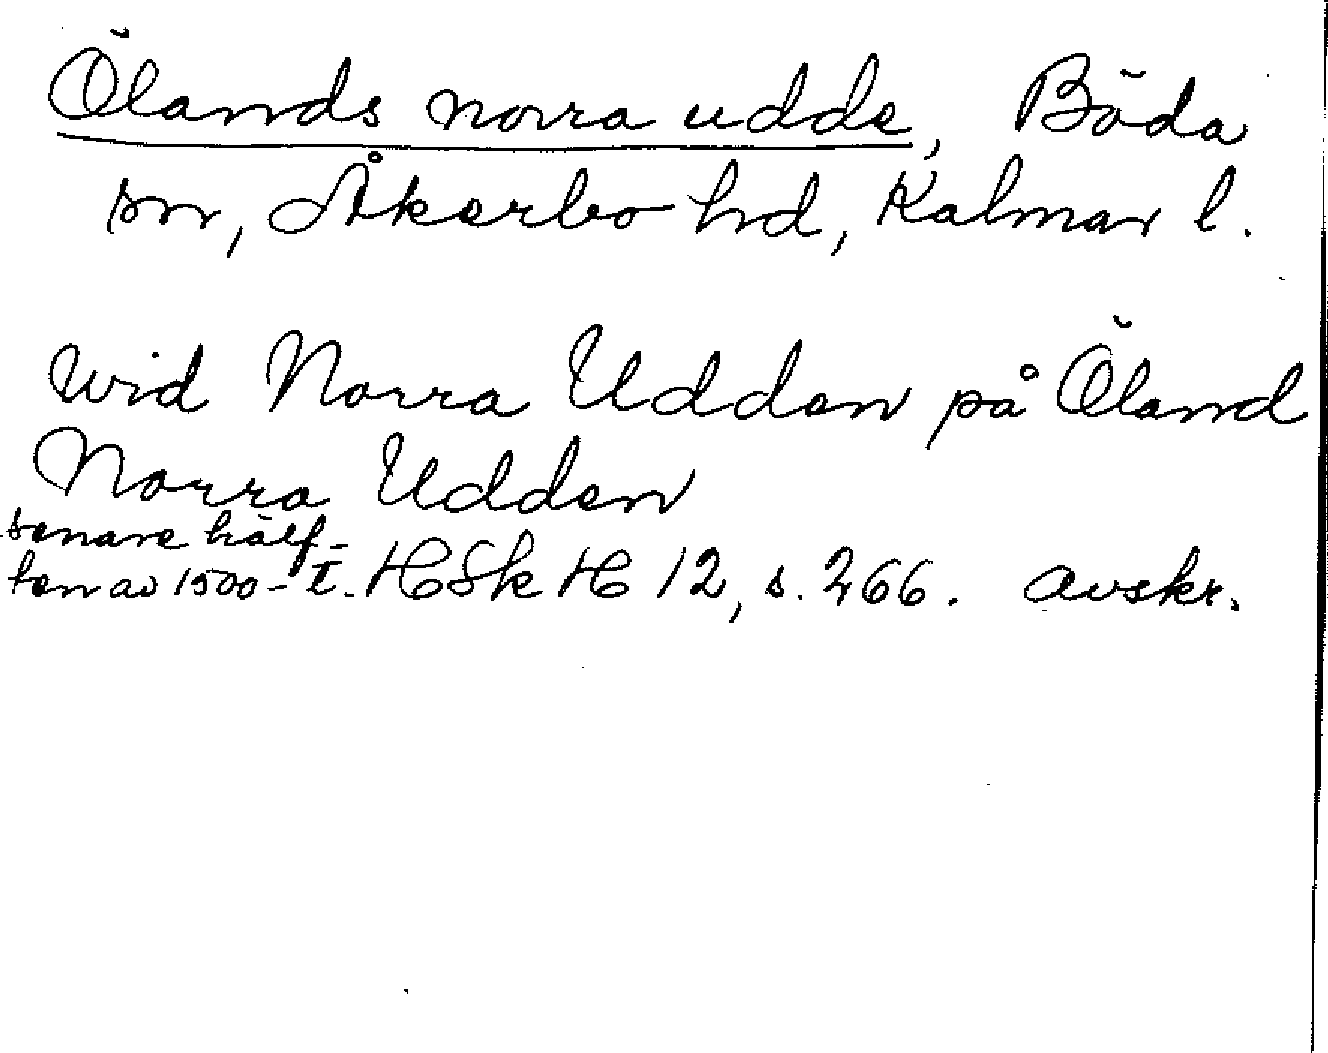 Ölands norra udde, Böda
sn, Åkerbo hd, Kalmar l.
wid Norra Udden på Öland
Norra Udden
senare hälf-
ten av 1500-t. HSk H 12, s. 266. avskr.